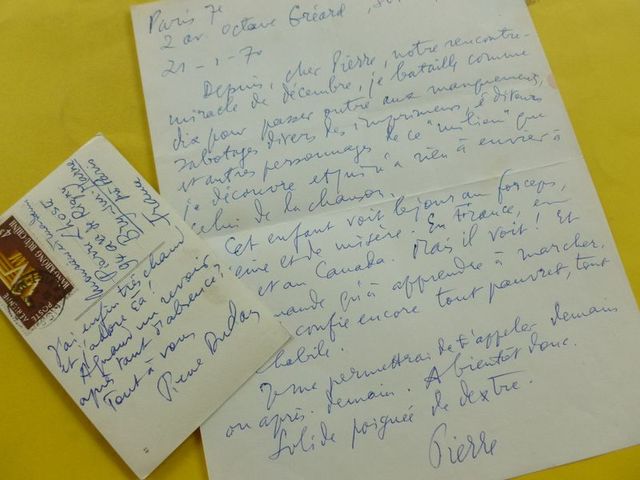 Paris 7e
2 av. Octave Gréard,
21-1-70
Depuis, cher Pierre, notre rencontre-
miracle de décembre, je bataille comme
dix pour passer outre aux manquements,
sabotages divers des imprimeurs, éditeurs
et autres personnages de ce "milieu" que
je découvre et qui n'a rien à envier à
celui de la chanson.
Cet enfant voit le jour au forceps,
et de misère. En France, en
et au Canada. Mais il voit! Et
demande qu'à apprendre à marcher.
confie encore tout pauvret, tout
habile.
Je me permettrai de t'appeler demain
ou après-demain. A bientôt donc.
Solide poignée de dextre.
Pierre
France
Bry-sur-Marne
Pierre
J'ai enfin très chaud
Et j'adore ça!
A quand un revoir
après tant d'absence?
Tout à vous
Pierre Dudan
POSTE